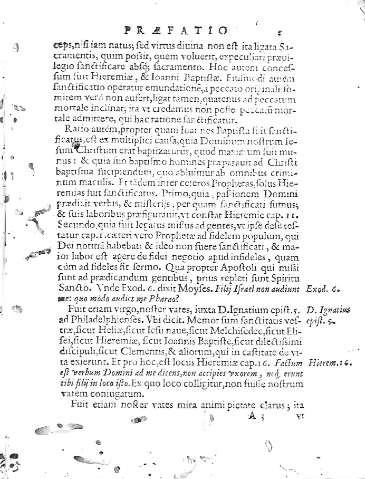 PRÆFATIO 5
ceps, nisi iam natus; sed virtus diuina non est ita ligata Sa-
cramentis, quin possit, quem voluerit, ex peculiari priui-
legio sanctificare absq; sacramento. Hoc autem conces-
sum fuit Hieremiæ, & Ioanni Baptistæ. autem
sanctificatio operatur emundationē a peccato ori. inali: fo-
mitem verò non aufert, ligat tamen, quatenus ad peccatum
mortale inclinat; ita vt credamus non posse peccatū mor-
tale admittere, qui hac ratione sanctificatur.
Ratio autem, propter quam Ioannes Baptista sit sancti-
ficatus, est ex multiplici causa, quia Dominum nostrum Ie-
sum Christum erat baptizaturus, quod maximum fuit mu-
nus: & quia suo baptismo homines præparabat ad Christi
baptisma suscipiendum, quo abluimur ab omnibus crimi-
num maculis. Et tādem inter ceteros Prophetas, solus Hie-
remias fuit sanctificatus. Primo, quia, passionem Domini
prædixit verbis, & misterijs, per quam sanctificati sumus;
& suis laboribus præfigurauit, vt constat Hieremiæ cap. 11.
Secundo, quia fuit legatus missus ad gentes, vt ipse deside
tatur cap. 1. cæteri vero Prophetæ ad fidelem populum, qui
Dei notitiā habebāt: & ideo non fuere sanctificati, & ma-
ior labor est agere de fidei negotio apud infideles, quam
cum ad fideles sit sermo. Qua propter Apostoli qui missi
sunt ad prædicandum gentibus, prius repleti sunt Spiritu
Sancto. Vnde Exod. 6. dixit Moyses. Filij Israel non audiunt Exod. 6.
me: quo modo audiet me Pharao?
Fuit etiam virgo, noster vates, iuxta D. Ignatium epist. 5. D. Ignatius
ad Philadelphienses. Vbi dicit. Memor sum sanctitatis ves- epist. 5.
træ, sicut Heliæ, sicut Iesu naue, sicut Melchisedec, sicut Eli-
sei, sicut Hieremiæ, sicut Ioannis Baptistæ, sicut dilectissimi
discipuli, sicut Clementis, & aliorum, qui in castitate de vi-
ta exierunt. Et pro hoc, est locus Hieremiæ cap. 16. Factum Hierem. 16.
est verbum Domini ad me dicens, non accipies vxorem, neq; erunt
tibi filij in loco isto. Ex quo loco colligitur, non fuisse nostrum
vatem coniugatum.
Fuit etiam noster vates mira animi pietate clarus; ita
A 3 vt